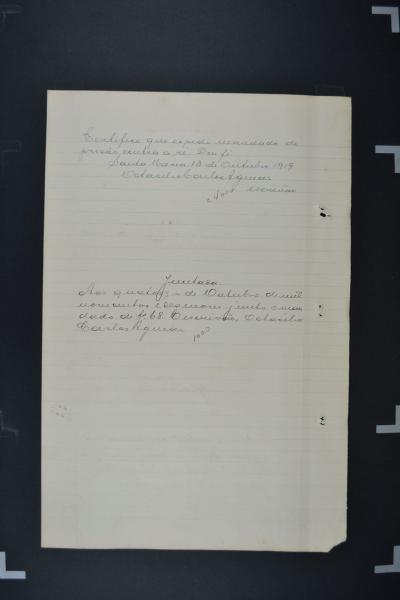 Certifico que expedi mandado de
prisão contra o ré. Dou fé
Santa Maria, 13 de Outubro 1919
Octacilio Carlos Aguiar
escrivão
Juntada
Aos quatorze de Outubro de mil
novecentos e dezenove junto o man
dado de fl 68. O escrivão, Octacilio
Carlos Aguiar